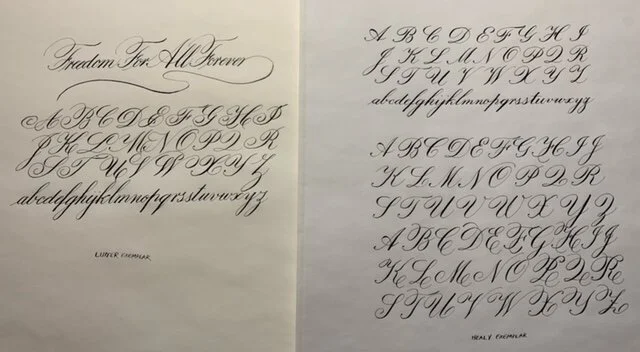 Freedom For All Forever
A B C D E F G H I
J K L M N O P Q R
S T U V W X Y Z
abcdefghijklmnopqrstuvwxyz
LUPFER EXEMPLAR
A B C D E F G H I
J K L M N O P Q R
S T U V W X Y Z
abcdefghijklmnopqrstuvwxyz
A B C D E F G H I J
K L M N O P Q R
S T U V W X Y Z
A B C D E F G H I J
K L M N O P Q R
S T U V W X Y Z
HEALY EXEMPLAR